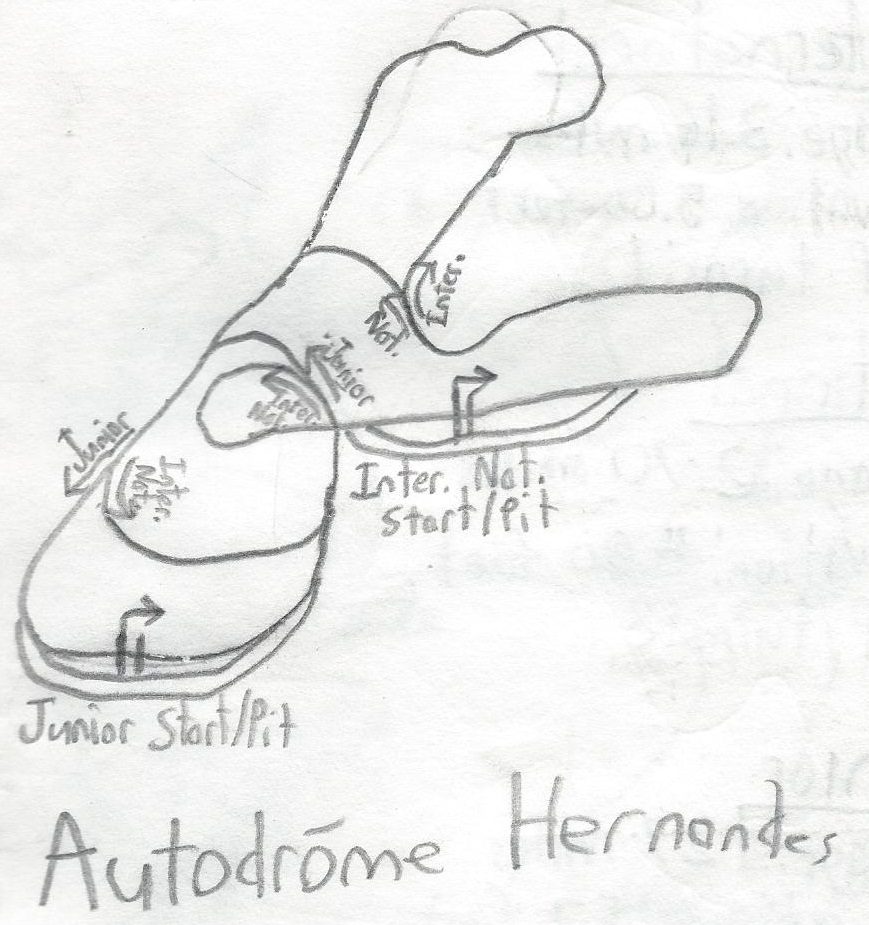 Inter.
Nat.
Junior
Inter.
Nat.
Junior
Inter.
Nat.
Inter. Nat.
Start/Pit
Junior Start/Pit
Autodrōme Hernandes